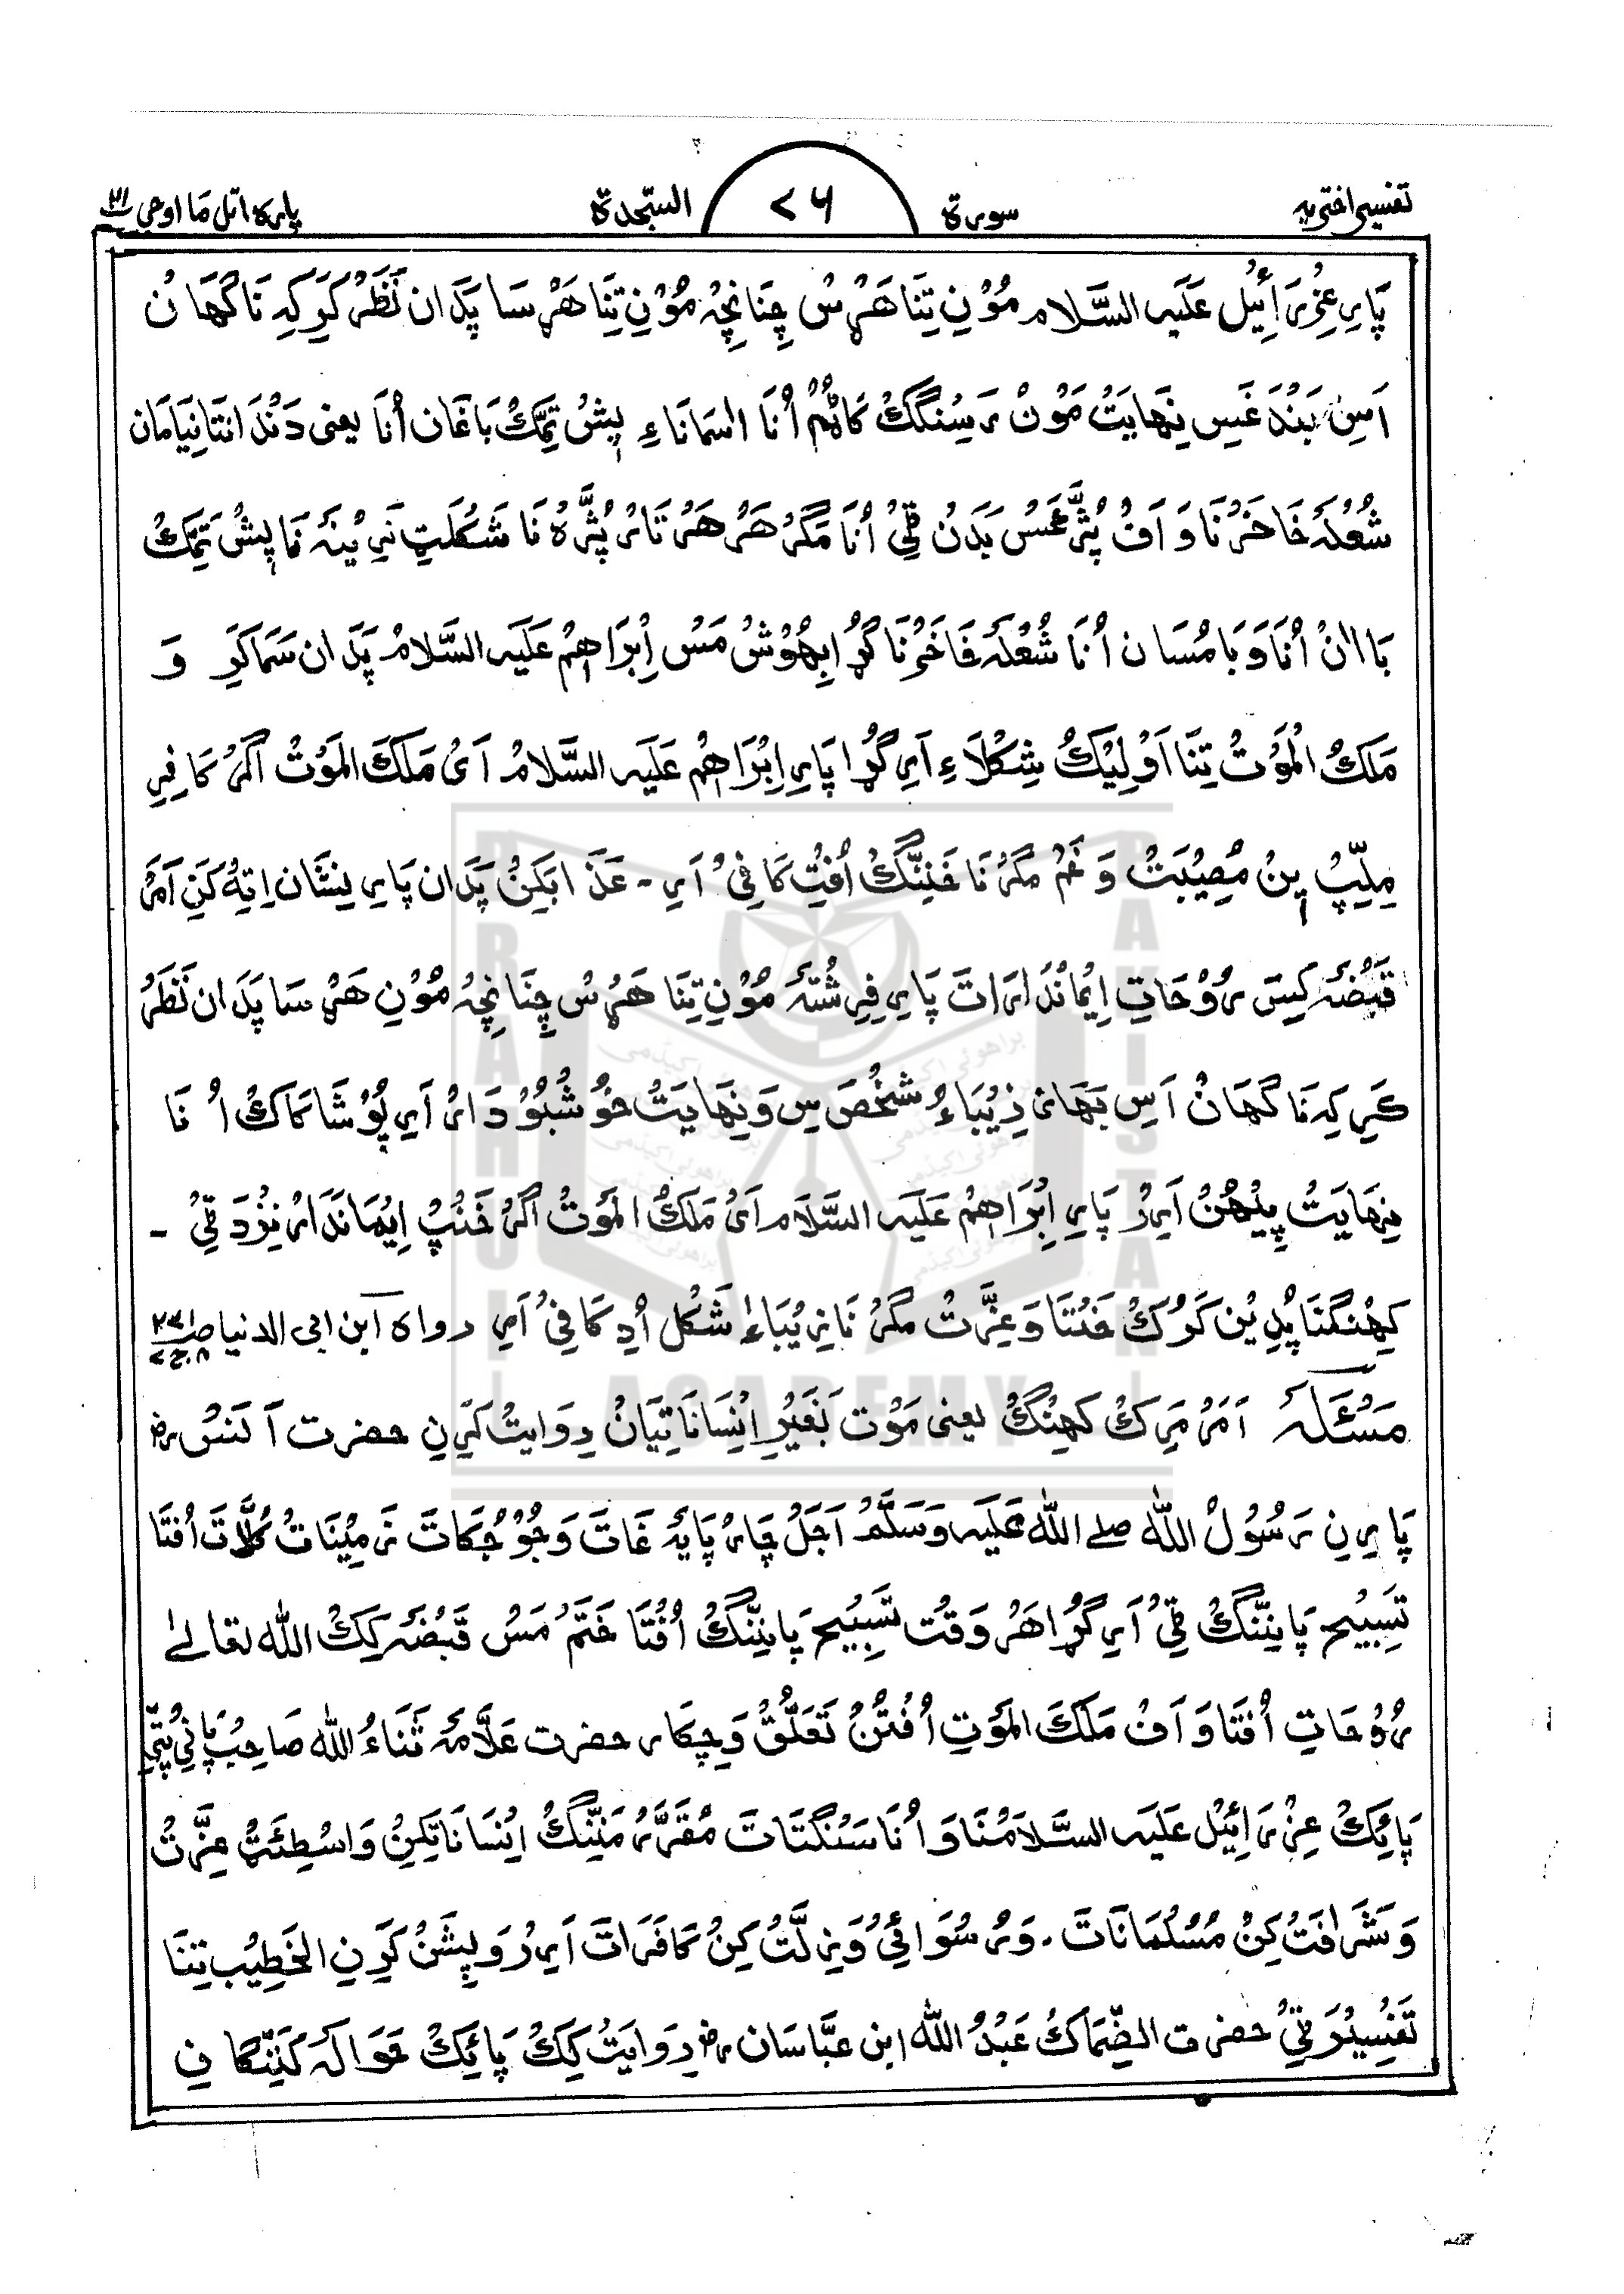 تفسیر اختریہ سورۃ ٧٦ السجدۃ پارہ اتل ما اوحی ٢١
پَارِ عِزْرَائِیل عَلَیہ السَّلام مُوْنِ تِنَا ھَرْسْ چِنَانچِہ مُوْنِ تِنَا ھَرْسَا پَدَان نَظَرْ کَرَ کِہ نَاگَھَان
اَسِ بَنْدَغَسِ نِہَایَتْ مَوْن رَسِنْگَکْ کَاٹُمْ اُنَا اسمَانَاءِ پِشْ تَمَّکْ بَاغَان اُنَا یعنی دَنْدَانتَانیَامَان
شُعْلَہ خَاخَرْنَا وَ اَفْ پُٹَّرغَسْ بَدَن ٹِیْ اُنَا مَگَرْ ھَرْ ھَرْ تَارْ پُٹَّرہ نَا شَکْلَتِ نَرِیْنَہ نَا پِشْ تَمَّکْ
بَااانْ اُنَا وَ بَامُسَان اُنَا شُعْلَہ خَاخَرْنَا گُڑا بِھُوْشْ مَسْ اِبْرَاھِیْم عَلَیہ السَّلَامْ پَدَان سَمَاکَرِ وَ
مَلَکُ الْمَوْتْ تِنَا اَوْلِیْکْ شِکْلَاءِ اَرِ گُڑا پَارِ اِبْرَاھِیْم عَلَیہ السَّلَامْ اَیْ مَلَکَ الْمَوْتْ اَگَرْ کَافِرِ
مِلِّپْ پِنْ مُصِیْبَتْ وَ غَمْ مَگَرْ نَا خَنِنَّگْ اُفْتِ کَافِیْ اَرِ - عَلَ ابَکِنْ پَدَان پَارِ نِشَان اِتِہْ کَنِ اَمَرْ
قَبْضَہ کِسَ رُوْحَاتِ اِیْمَانْدَارَاتَ پَارِ فِرِشْتَہ مُوْنِ تِنَا ھَرْسْ چِنَانچِہ مُوْنِ ھَرْ سَا پَدَان نَظَرْ
کَرِ کِہ نَاگَھَانْ اَسِ بَھَاز زِیْبَاءُ شَخْصَ سِ وَ نِھَایَتْ خُوْشْبُوْدَارْ اَرِ پُوْشَاکَاکْ اُنَا
نِھَایَتْ پِیْھُنْ اَرِرْ پَارِ اِبْرَاھِیْم عَلَیہ السَّلَام اَیْ مَلَکُ الْمَوْتْ اَگَرْ خَنْپْ اِیْمَانْدَارْ نِزْدَ ٹِیْ -
کِھِنْگنَا پُدِیْن کَرْرَکْ خَنْتَا وَ عِزَّتْ مَگَرْ نَا زِیْبَاءٰ شَکْل اُدِ کَافِیْ اَرِ رواہ ابن ابی الدنیا
مَسْئَلَہ اَمَرْ مَرِکْ کَھِنْگْ یعنی مَوْت بَغَیْرِ اِنْسَانَاتِیَانْ رِوَایَتْ کَرِنِ حضرت اَنَسْ رض
پَارِنِ رَسُوْلُ اللہ صلے اللہ عَلَیہ وَسَلَّمْ اَجَلْ چَارْ پَایَہ غَاتَ وَجُوْجُکَاتَ زَمِیْنَاتْ کُلَّاتَ اُفتَا
تَسْبِیْح پَانِنَّگْ ٹِیْ اَرِ گُڑا ھَرْوَقْت تَسْبِیْح پَانِنَّگْ اُفْتَا خَتَمْ مَسْ قَبْضَہ کِکْ اللہ تعالےٰ
رُوْحَاتِ اُفتَا وَ اَفْ مَلَکَ الْمَوْتِ اُفْتُنْ تَعَلُّقْ وَچِکَار حضرت عَلَّامَہ ثَنَاءُ اللہ صَاحِبْ پَانِیْ پَتِّی
پَائِکْ عِزْرَائِیْل عَلَیہ السَّلَامْنَا وَ اُنَا سَنْگَتَاتَ مُقَرَّرْ مَنِنَّگْ اِنْسَانَاتِکِنْ وَاسْطِئَٹِ عِزَّتْ
وَ شَرَافَتْ کِنْ مُسُلْمَانَاتَ ۔ وَ رُسْوَائِیْ وَ زِلَّتْ کِنْ کَافَرَاتَ اَرِرْ وَ پِشَنْ کَرِنِ الخَطِیْب تِنَا
تَفْسِیْرَ ٹِیْ حضرت الضِّحَاکْ عَبْدُ اللہ ابن عَبَّاسَان رض رِوَایَتْ کِکْ پَائِکْ حَوَالَہ کَنِنَّگَا نِ